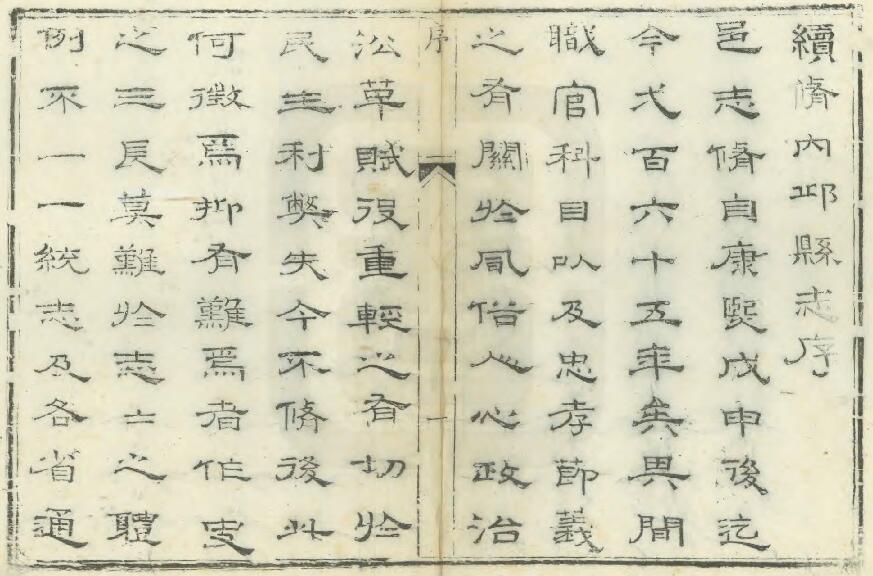 續脩內邱縣志序
邑志脩自康熙戊申後迄
今弍百六十五年矣其間
職官科目以及忠孝節義
之有關於風俗人心政治
序
一
沿革賦役重輕之有切於
民生利獘失今不脩後此
何徵焉抑有難焉者作史
之三長莫難於志志之體
例不一一統志及各省通